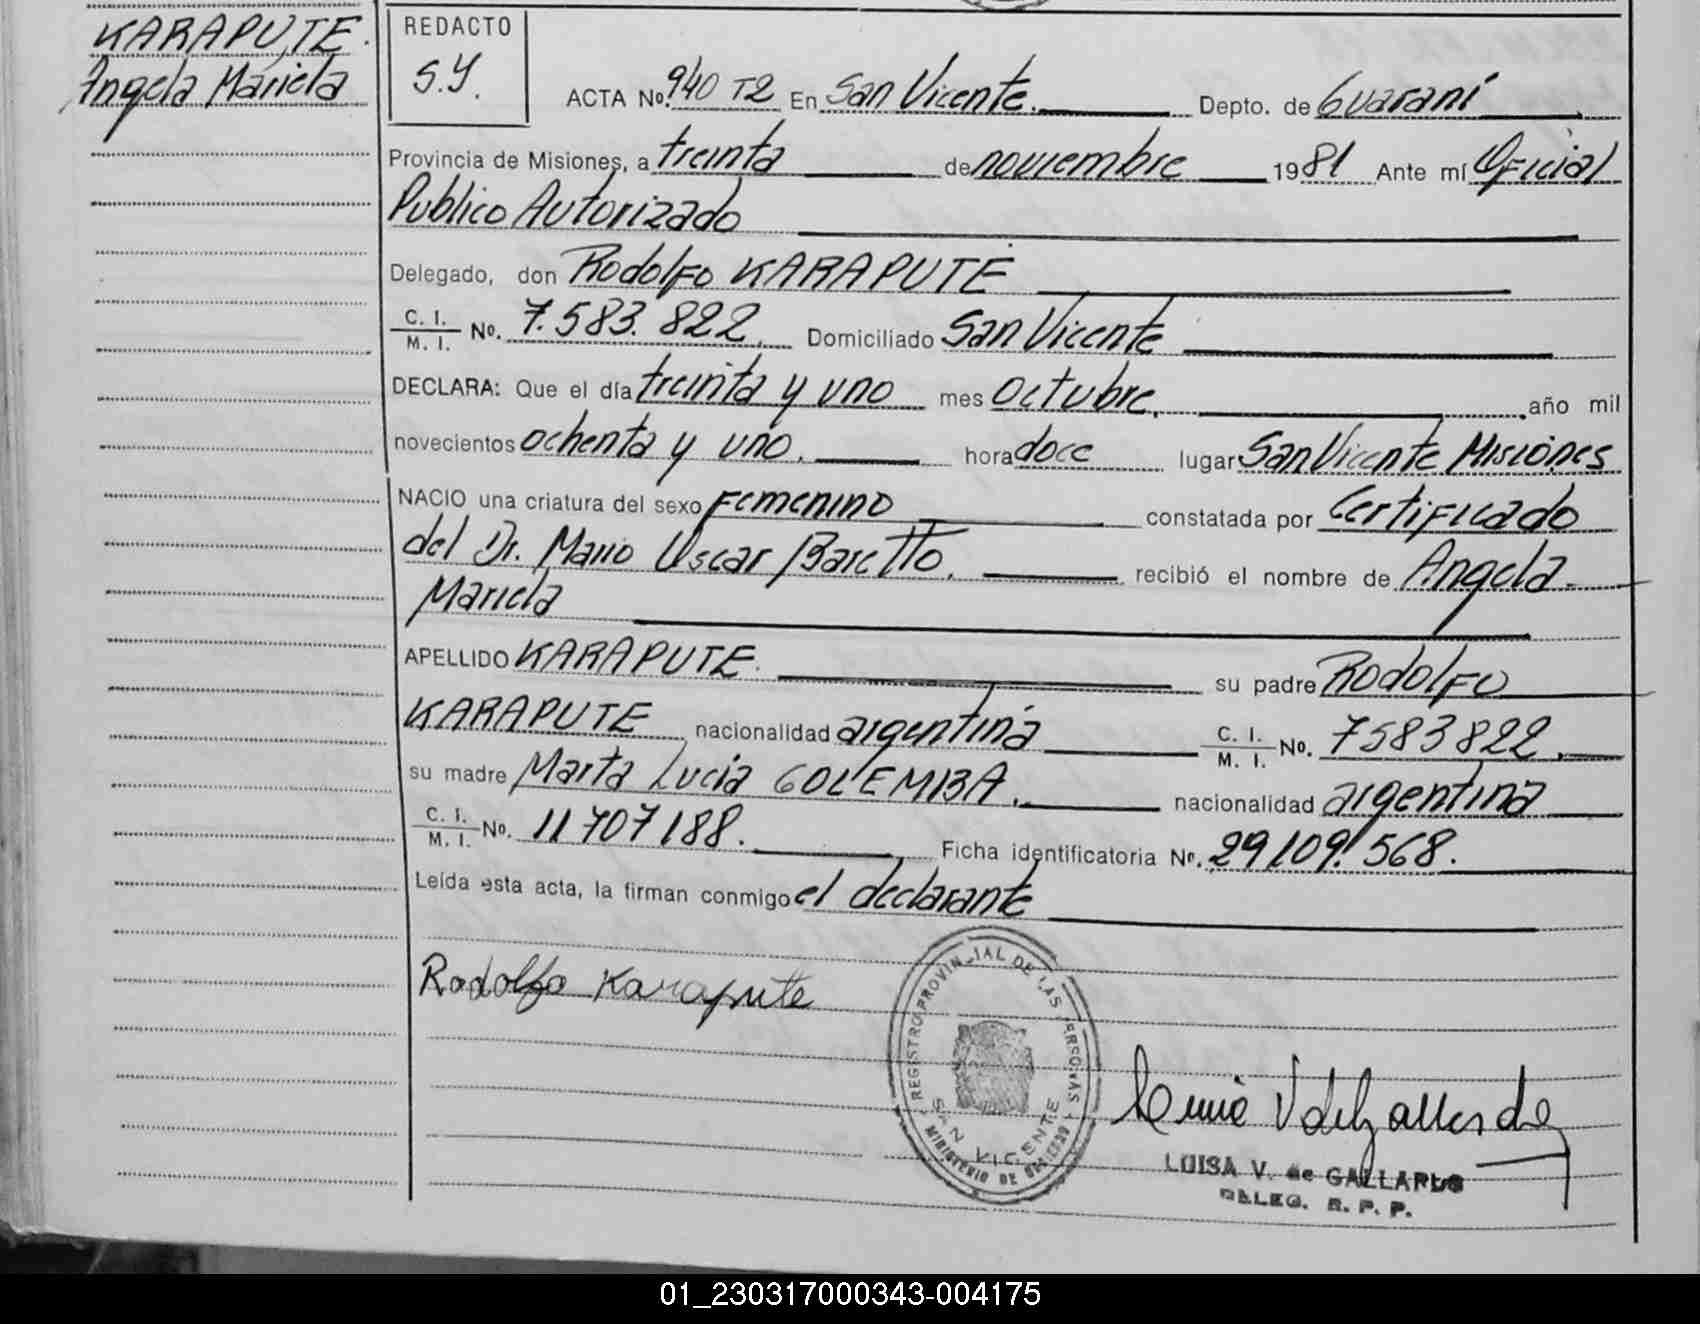 KARAPUTE.
Angela Mariela
REDACTO
S.Y.
ACTA No. 940 T2 En San Vicente. Depto. de Guaraní
Provincia de Misiones, a treinta de noviembre 1981 Ante mí Oficial
Publico Autorizado
Delegado, don Rodolfo KARAPUTE
C. I. / M. I. No. 7.583.822. Domiciliado San Vicente
DECLARA: Que el día treinta y uno mes octubre. año mil
novecientos ochenta y uno. hora doce lugar San Vicente Misiones
NACIO una criatura del sexo Femenino constatada por Certificado
del Dr. Mario Oscar Baretto. recibió el nombre de Angela
Mariela
APELLIDO KARAPUTE. su padre Rodolfo
KARAPUTE nacionalidad argentina C. I. / M. I. No. 7583822.
su madre Marta Lucia GOLEMBA. nacionalidad argentina
C. I. / M. I. No. 11707188. Ficha identificatoria No. 29109.568.
Leída esta acta, la firman conmigo el declarante
Rodolfo Karapute
REGISTRO PROVINCIAL DE LAS PERSONAS
SAN VICENTE
MINISTERIO DE GOBIERNO
LUISA V. de GALLARDO
DELEG. R. P. P.
01_230317000343-004175